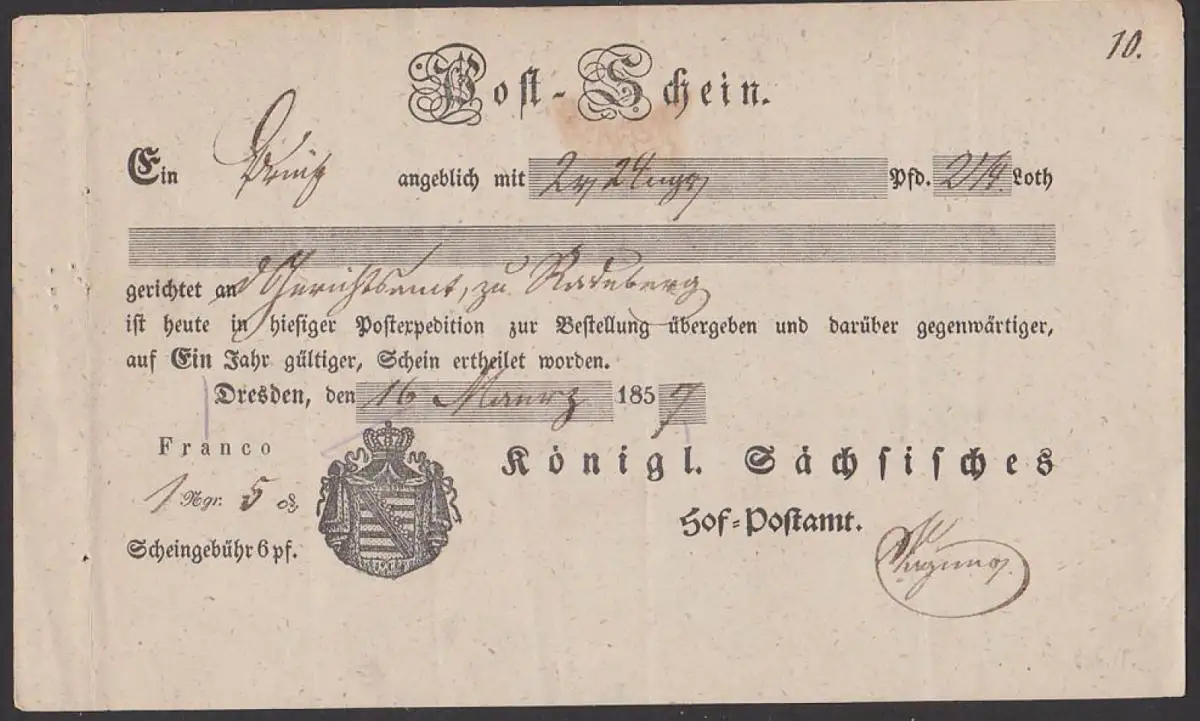 10.
Post-Schein.
Ein angeblich mit 2 24 ngr Pfd. 2 1/4 Loth
gerichtet an d Gerichtsamt, zu Radeberg
ist heute in hiesiger Postexpedition zur Bestellung übergeben und darüber gegenwärtiger,
auf Ein Jahr gültiger, Schein ertheilet worden.
Dresden, den 16 Maerz 1857
Franco
1 Ngr. 5 ₰
Scheingebühr 6 pf.
Königl. Sächsisches
Hof-Postamt.